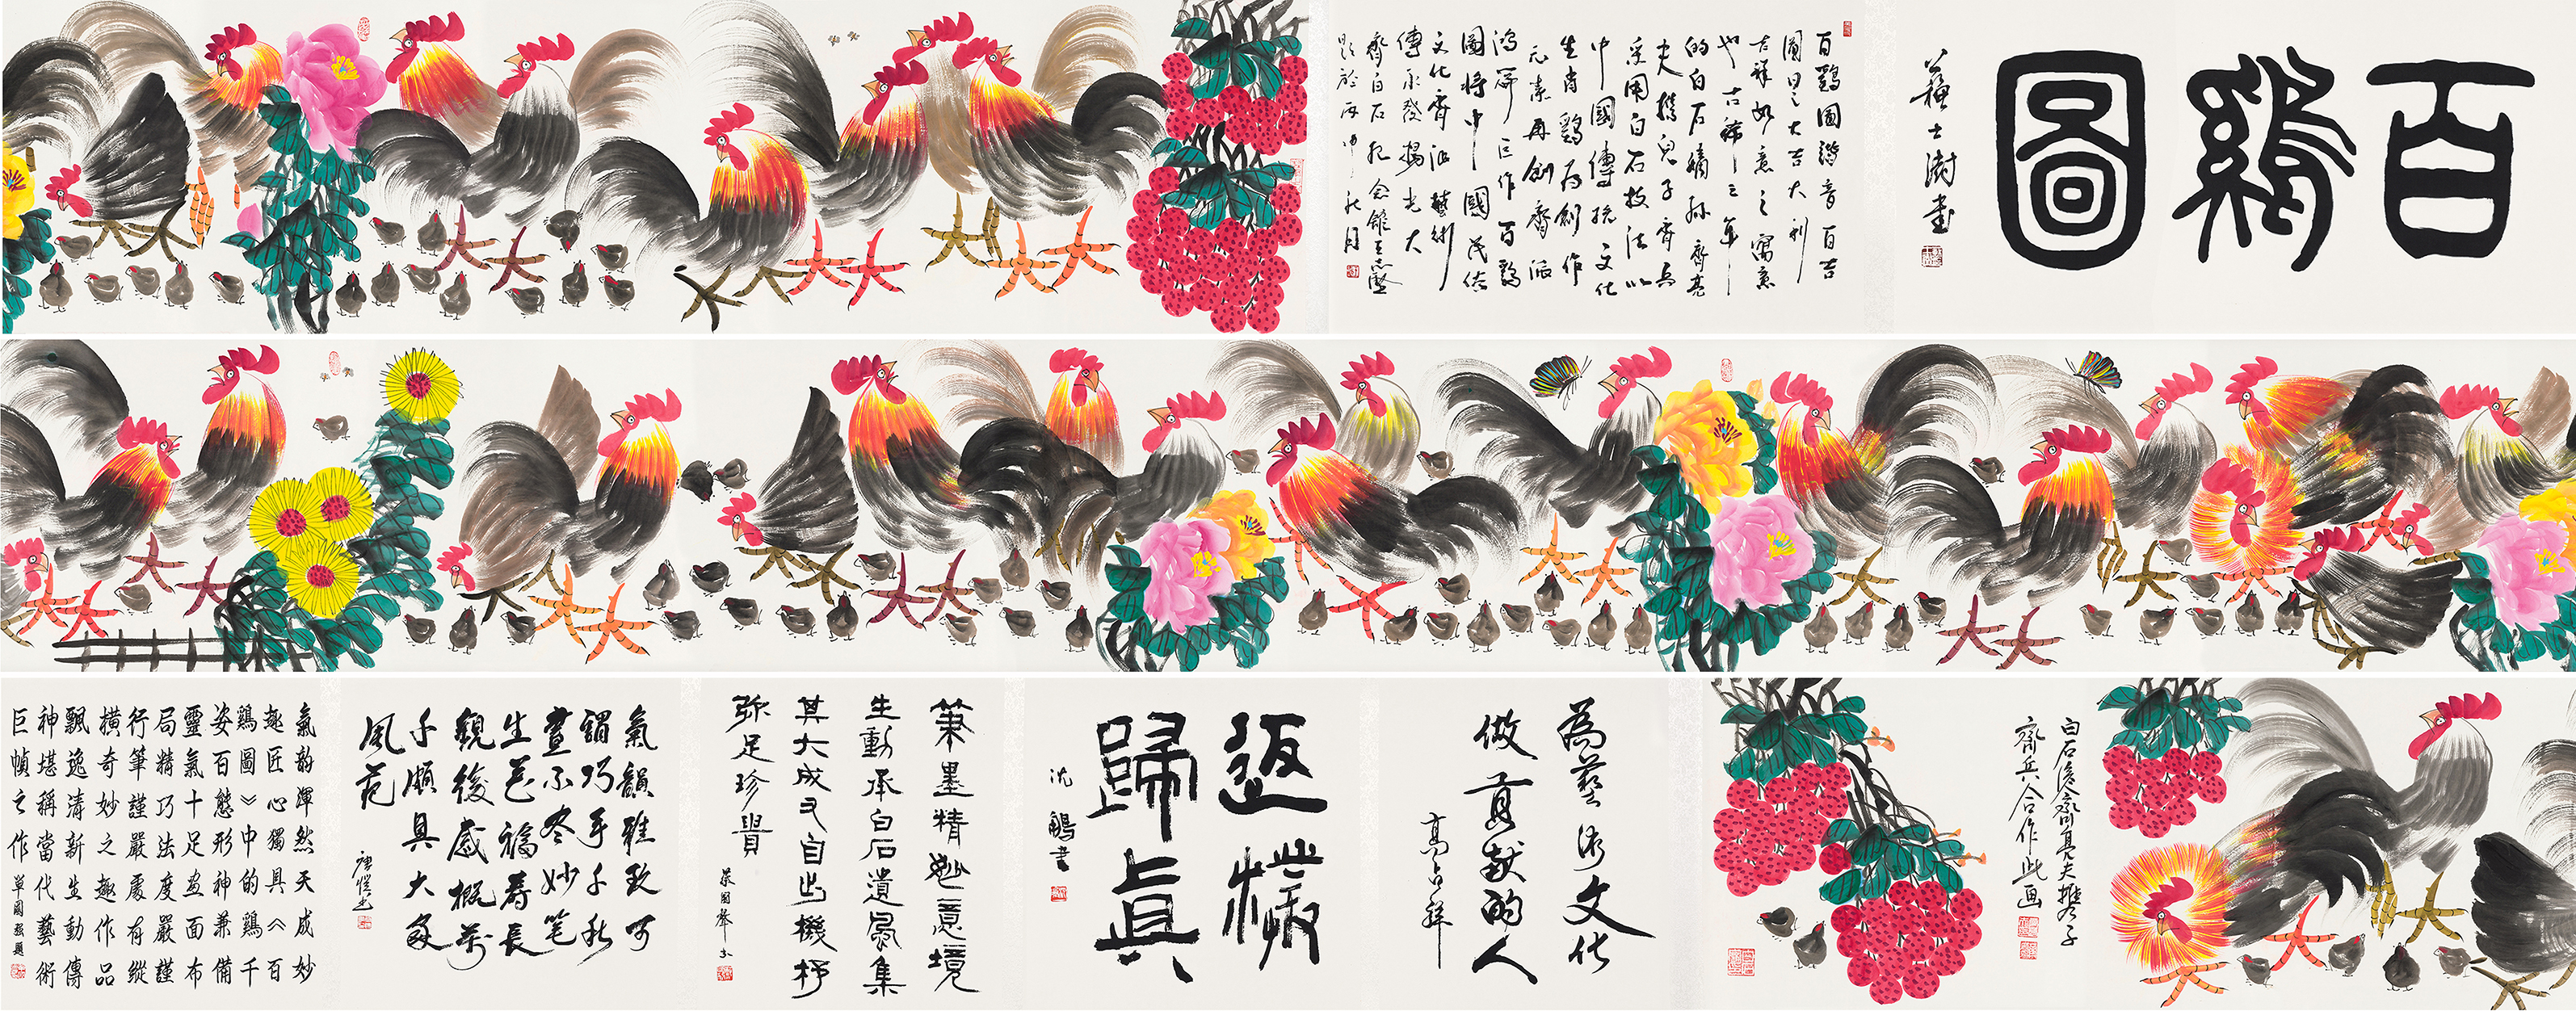 百鷄圖
蘇士澍書
百鷄圖諧音百吉
圖曰之大吉大利
吉祥如意之寓意
也古稀之年
的白石嫡孫齊亮
夫携兒子齊兵
采用白石技法以
中國傳統文化
生肖鷄为創作
元素再創齊派
鴻篇巨作百鷄
圖將中國民俗
文化齊派藝術
傳承發揚光大
齊白石紀念館王志堅
題於丙申秋月
白石後齊亮夫携子
齊兵合作此画
為藝術文化
做貢献的人
高占祥
返樸
歸真
沈鵬書
筆墨精妙意境
生動承白石遺風集
其大成又自出機杼
弥足珍貴
蔡國聲书
氣韻雅致可
謂巧手千秋
畫不尽妙笔
生花福壽長
觀後感概萬
千頗具大家
風范
氣韵渾然天成妙
趣匠心獨具《百
鷄圖》中的鷄千
姿百態形神兼備
靈氣十足畫面布
局精巧法度嚴謹
行筆謹嚴處有縱
橫奇妙之趣作品
飄逸清新生動傳
神堪稱當代藝術
巨幀之作 單國强題